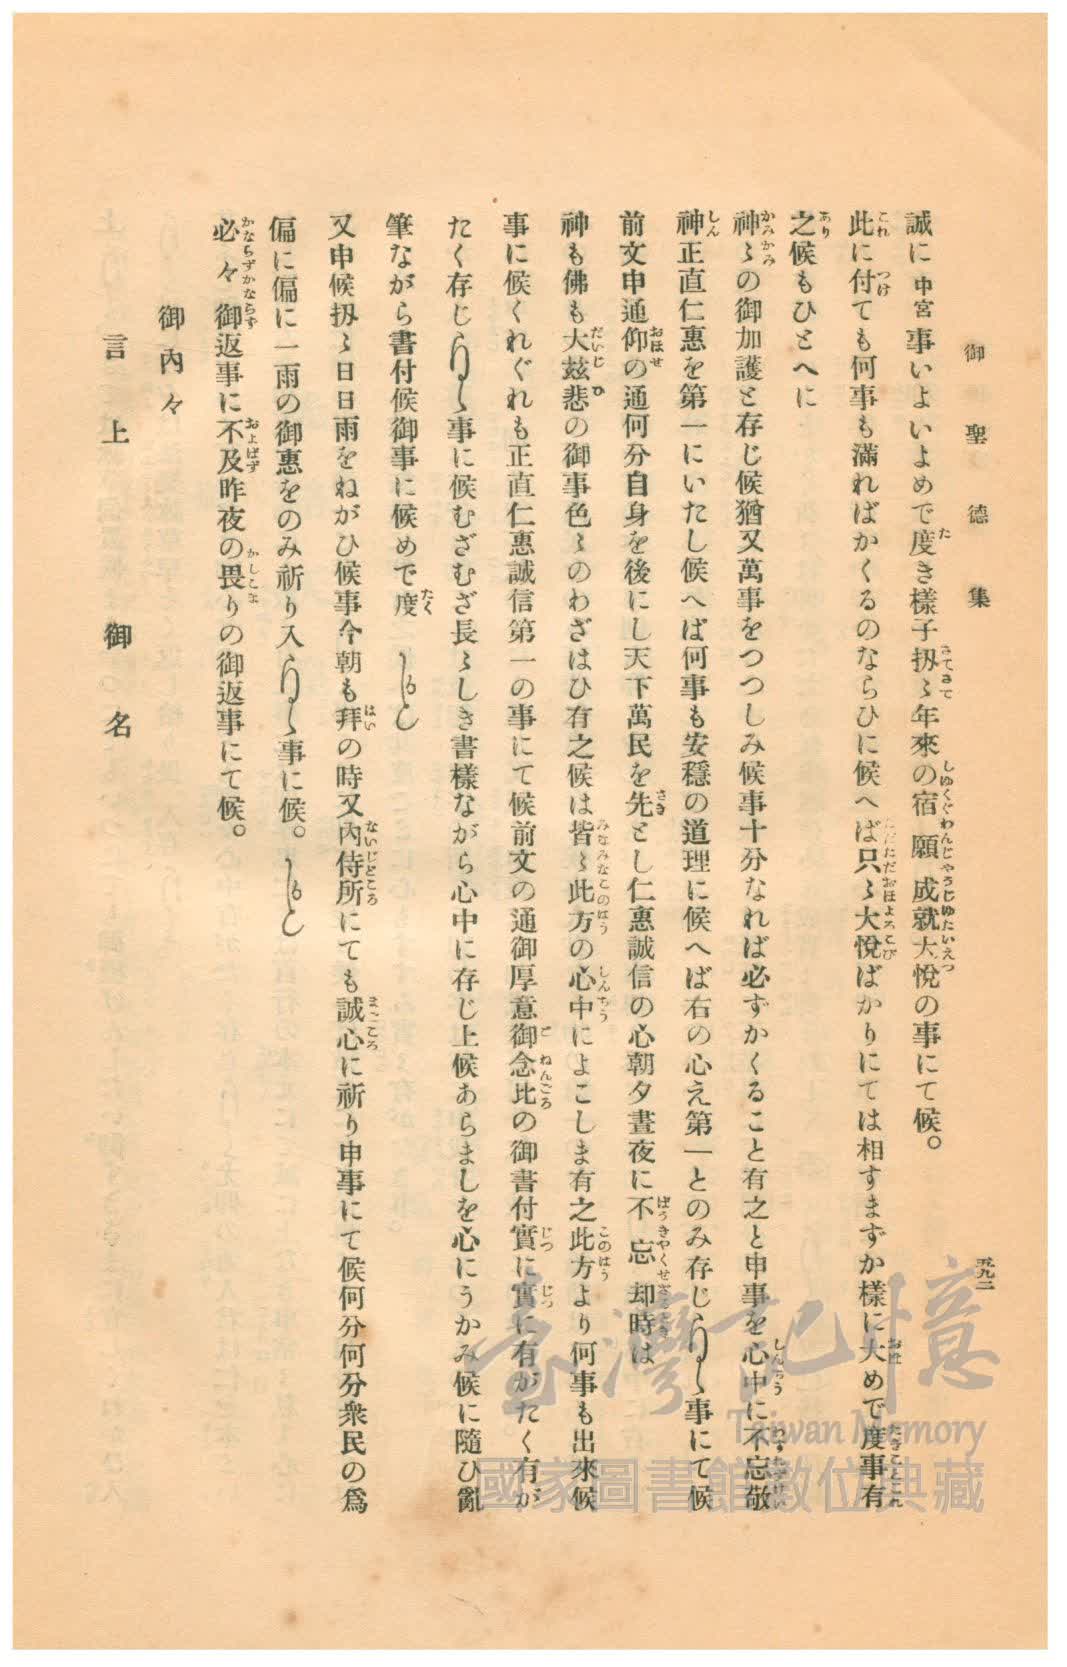 御聖德集
五九二
誠に中宮事いよいよめで度き樣子扨〻年來の宿願成就大悅の事にて候。
此に付ても何事も滿ればかくるのならひに候へば只〻大悅ばかりにては相すまずか樣に大めで度事有
之候もひとへに
神〻の御加護と存じ候猶又萬事をつつしみ候事十分なれば必ずかくること有之と申事を心中に不忘敬
神正直仁惠を第一にいたし候へば何事も安穩の道理に候へば右の心え第一とのみ存じ事にて候
前文申通仰の通何分自身を後にし天下萬民を先とし仁惠誠信の心朝夕晝夜に不忘却時は
神も佛も大玆悲の御事色〻のわざはひ有之候は皆〻此方の心中によこしま有之此方より何事も出來候
事に候くれぐれも正直仁惠誠信第一の事にて候前文の通御厚意御念比の御書付實に實に有がたく有が
たく存じ事に候むざむざ長〻しき書樣ながら心中に存じ上候あらましを心にうかみ候に隨ひ亂
筆ながら書付候御事に候めで度
又申候扨〻日日雨をねがひ候事今朝も拜の時又內侍所にても誠心に祈り申事にて候何分何分衆民の爲
偏に偏に一雨の御惠をのみ祈り入事に候。
必々御返事に不及昨夜の畏りの御返事にて候。
御內々
言上 御名
臺灣記憶
Taiwan Memory
國家圖書館數位典藏